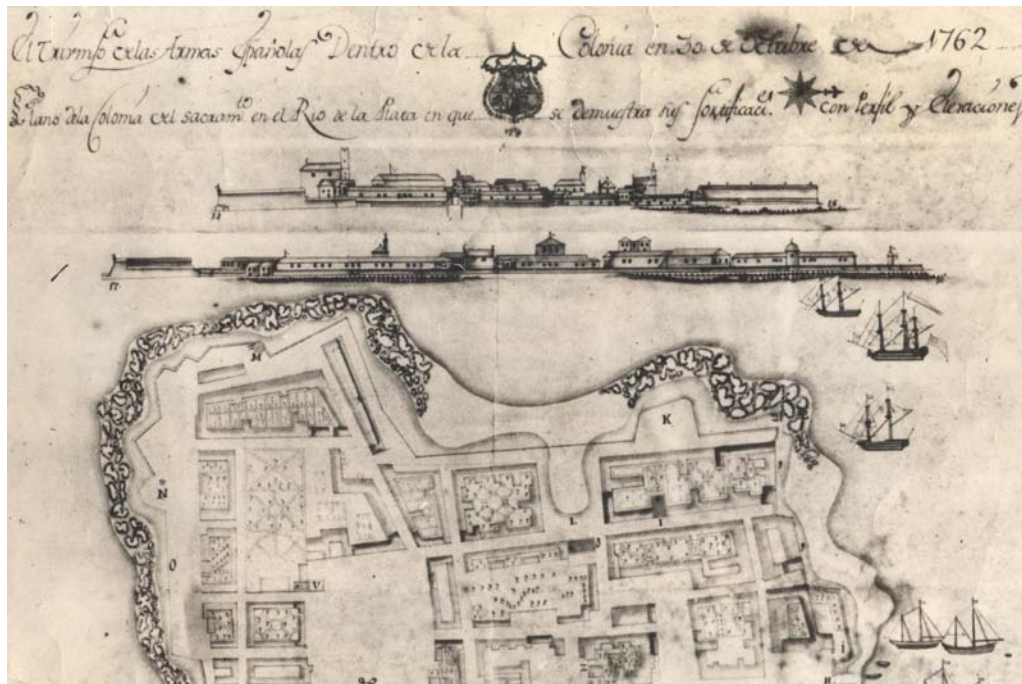 El Triumfo de las Armas Españolas Dentro de la Colonia en 30 de Octubre de 1762
Plano dela Colonia del sacram.to en el Rio de la Plata en que se demuestra sus fortificaci.es con Perfil y Elevaciones
17
M
K
N
L
I
O
V
H